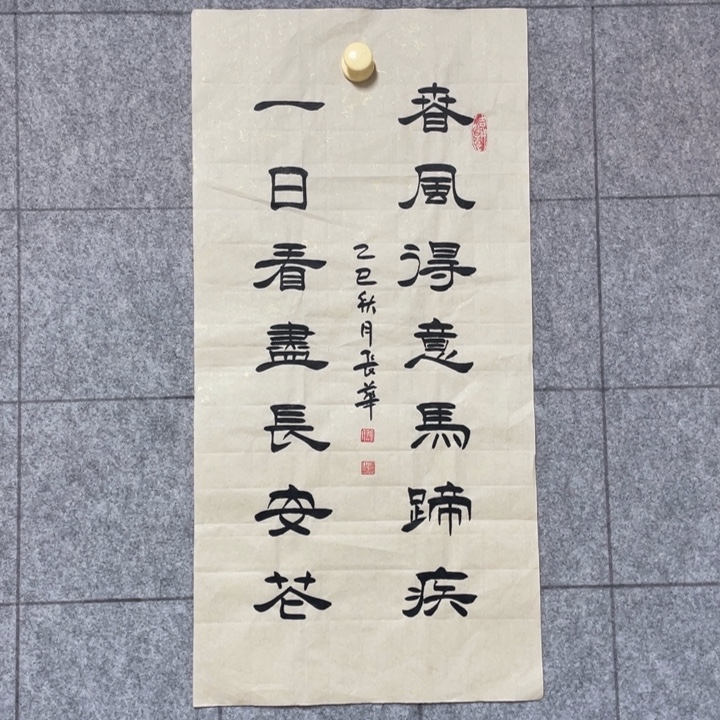 春風得意馬蹄疾
一日看盡長安花
乙巳秋月長華